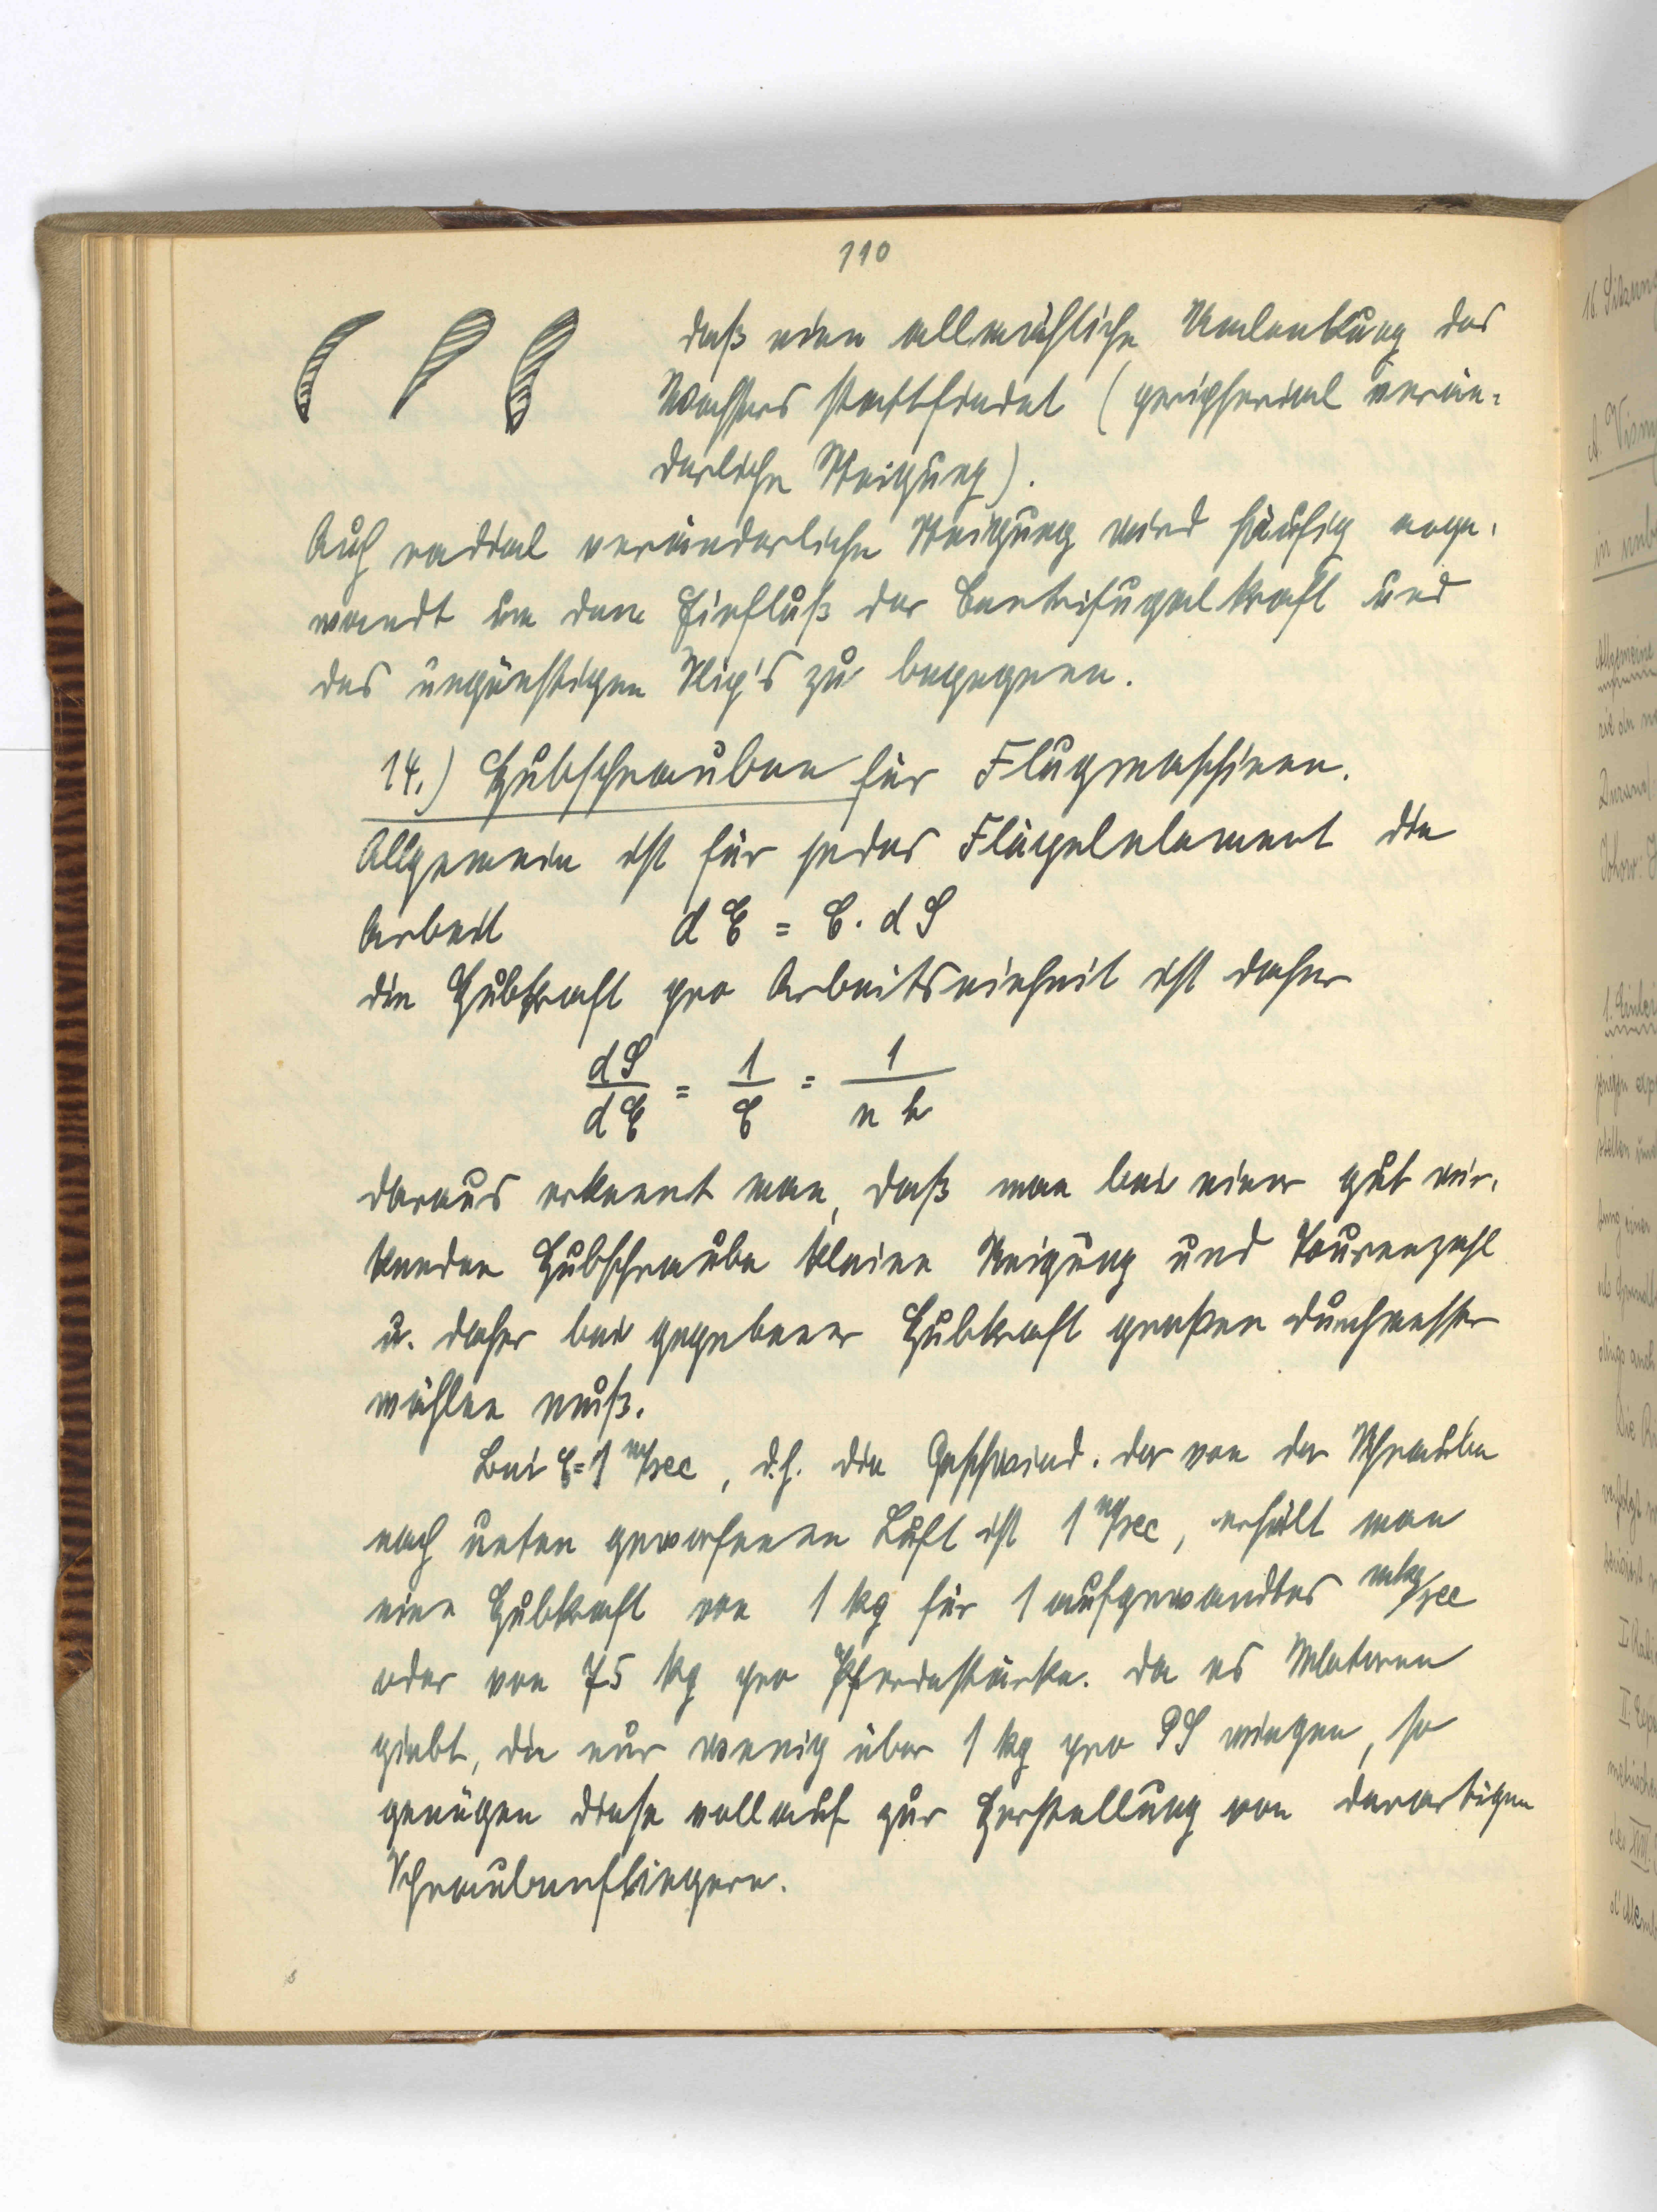 110
daß eine allmähliche Umlenkung des
Wassers stattfindet (peripherial verän-
derliche Steigung).
Auch radial veränderliche Steigung wird häufig ange-
wandt um dem Einfluß der Centrifugalkraft und
des ungünstigen Slip's zu begegnen.
14.) Hubschrauben für Flugmaschinen.
Allgemein ist für jedes Flügelelement die
Arbeit dE = C. dS
die Hubkraft pro Arbeitseinheit ist daher
dS/dE = 1/C = 1/n h
daraus erkennt man, daß man bei einer gut wir-
kenden Hubschraube kleine Steigung und Tourenzahl
u. daher bei gegebener Hubkraft großen Durchmesser
wählen muß.
Bei C=1 m/sec, d.h. die Geschwind. der von der Schraube
nach unten geworfenen Luft ist 1 m/sec, erhält man
eine Hubkraft von 1 kg für 1 aufgewandtes mkg/sec
oder von 75 kg pro Pferdestärke. Da es Motoren
giebt, die nur wenig über 1 kg pro PS wiegen, so
genügen diese vollauf zur Herstellung von derartigen
Schraubenfliegern.
16. Sitzung
in
Allgemeine